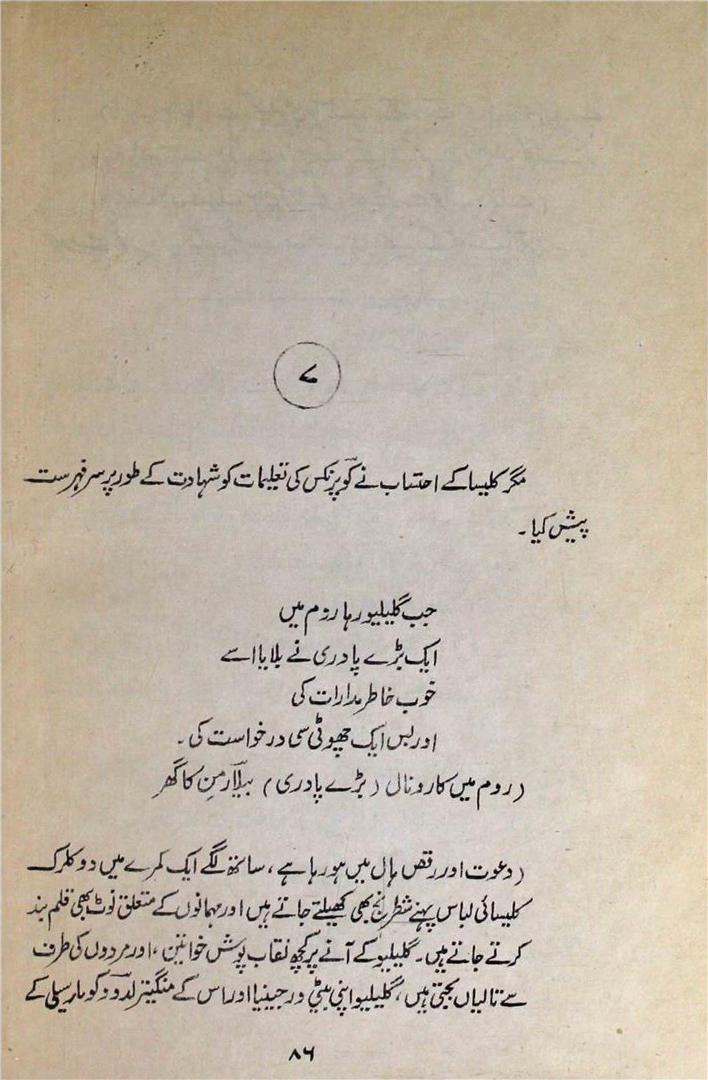 ۷
مگر کلیسا کے احتساب نے کوپرنکس کی تعلیمات کو شہادت کے طور پر سرفہرست
پیش کیا۔
جب گلیلیو رہا روم میں
ایک بڑے پادری نے بلایا اسے
خوب خاطر مدارات کی
اور بس ایک چھوٹی سی درخواست کی۔
(روم میں کارونال (بڑے پادری) بیلارمن کا گھر
(دعوت اور رقص ہال میں ہو رہا ہے، ساتھ لگے ایک کمرے میں دو کلرک
کلیسائی لباس پہنے شطرنج بھی کھیلتے جاتے ہیں اور مہمانوں کے متعلق نوٹ بھی قلم بند
کرتے جاتے ہیں۔ گلیلیو کے آنے پر کچھ نقاب پوش خواتین، اور مردوں کی طرف
سے تالیاں بجتی ہیں، گلیلیو اپنی بیٹی ورجینیا اور اس کے منگیتر لدوو کو مارسیلی کے
۸۶